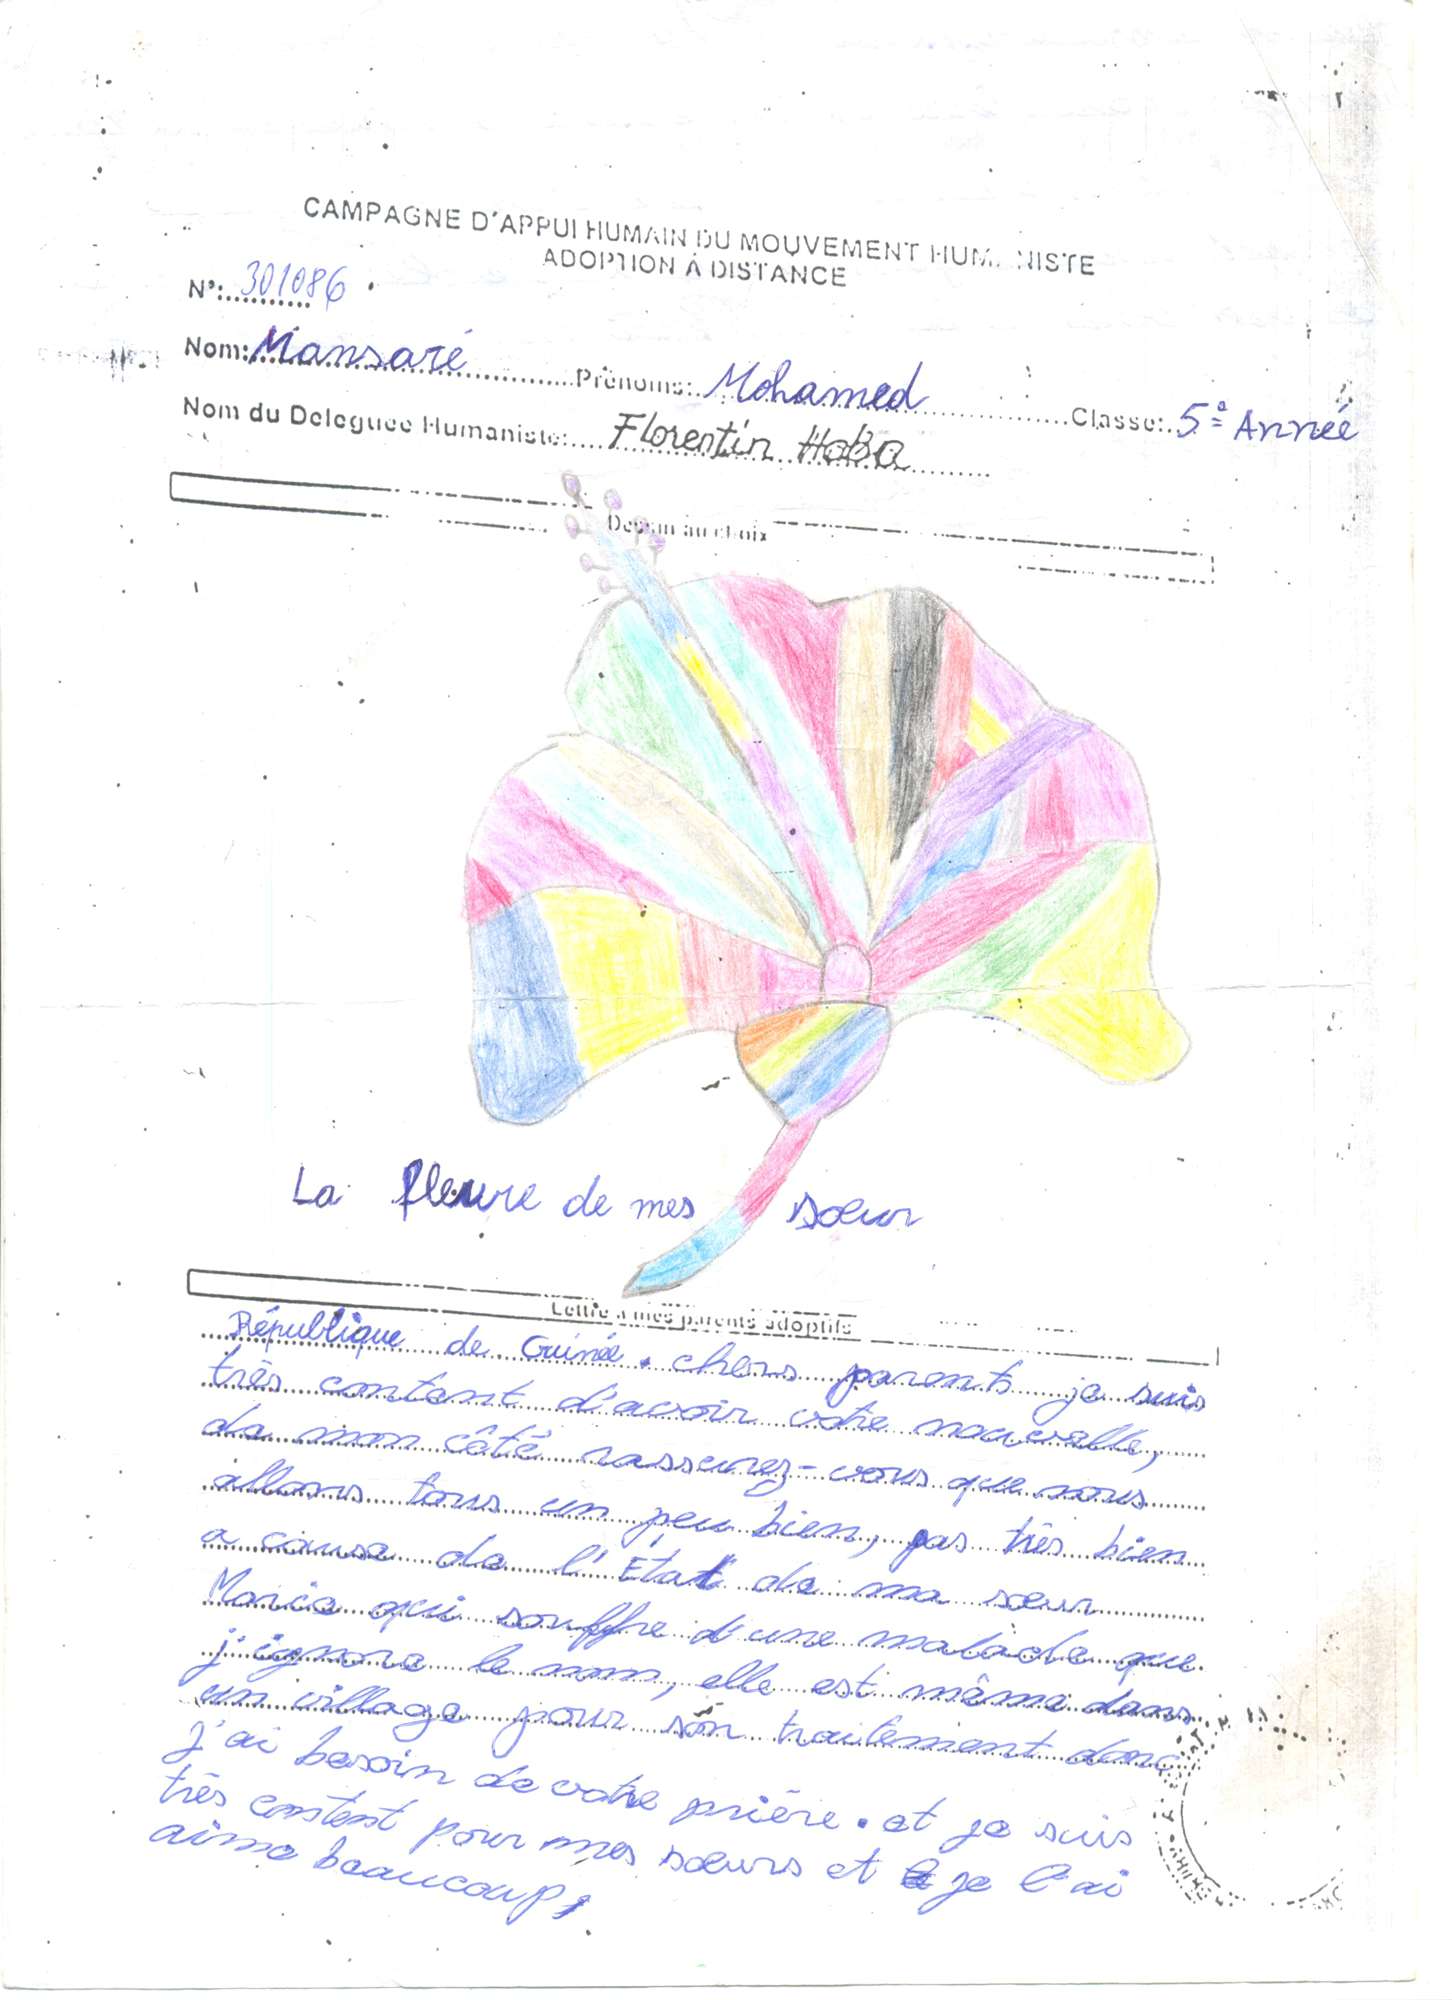 CAMPAGNE D'APPUI HUMAIN DU MOUVEMENT HUMANISTE
ADOPTION À DISTANCE
N°: 301086
Nom: Mansaré Prénoms: Mohamed Classe: 5e Année
Nom du Déléguée Humaniste: Florentin Haba
Dessin au choix
La fleure de mes sœur
Lettre à mes parents adoptifs
République de Guinée. chers parents je suis
très contant d'avoir votre nouvelle,
de mon côté rassurez-vous que nous
allons tous un peu bien, pas très bien
a cause de l'État de ma sœur
Marie qui souffre d'une malade que
j'ignore le nom, elle est même dans
un village pour son traitement donc
j'ai besoin de votre prière. et je suis
très content pour mes sœurs et je l'ai
aime beaucoup,